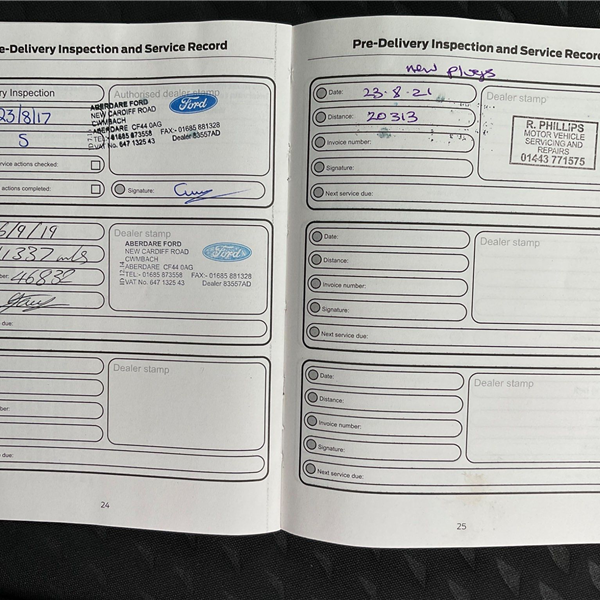 e-Delivery Inspection and Service Record
ry Inspection
23/8/17
5
rvice actions checked:
actions completed:
Authorised dealer stamp
ABERDARE FORD
NEW CARDIFF ROAD
CWMBACH
ABERDARE CF44 0AG
TEL:- 01685 873558 FAX:- 01685 881328
VAT No. 647 1325 43 Dealer 83557AD
Ford
Signature:
6/9/19
11337 mls
ber: 46832
due:
Dealer stamp
ABERDARE FORD
NEW CARDIFF ROAD
CWMBACH
ABERDARE CF44 0AG
TEL:- 01685 873558 FAX:- 01685 881328
VAT No. 647 1325 43 Dealer 83557AD
ID 12.14
Ford
Dealer stamp
ber:
due:
24
Pre-Delivery Inspection and Service Record
new plugs
Date: 23.8.21
Distance: 20313
Invoice number:
Signature:
Next service due:
Dealer stamp
R. PHILLIPS
MOTOR VEHICLE
SERVICING AND
REPAIRS
01443 771575
Date:
Distance:
Invoice number:
Signature:
Next service due:
Dealer stamp
Date:
Distance:
Invoice number:
Signature:
Next service due:
Dealer stamp
25